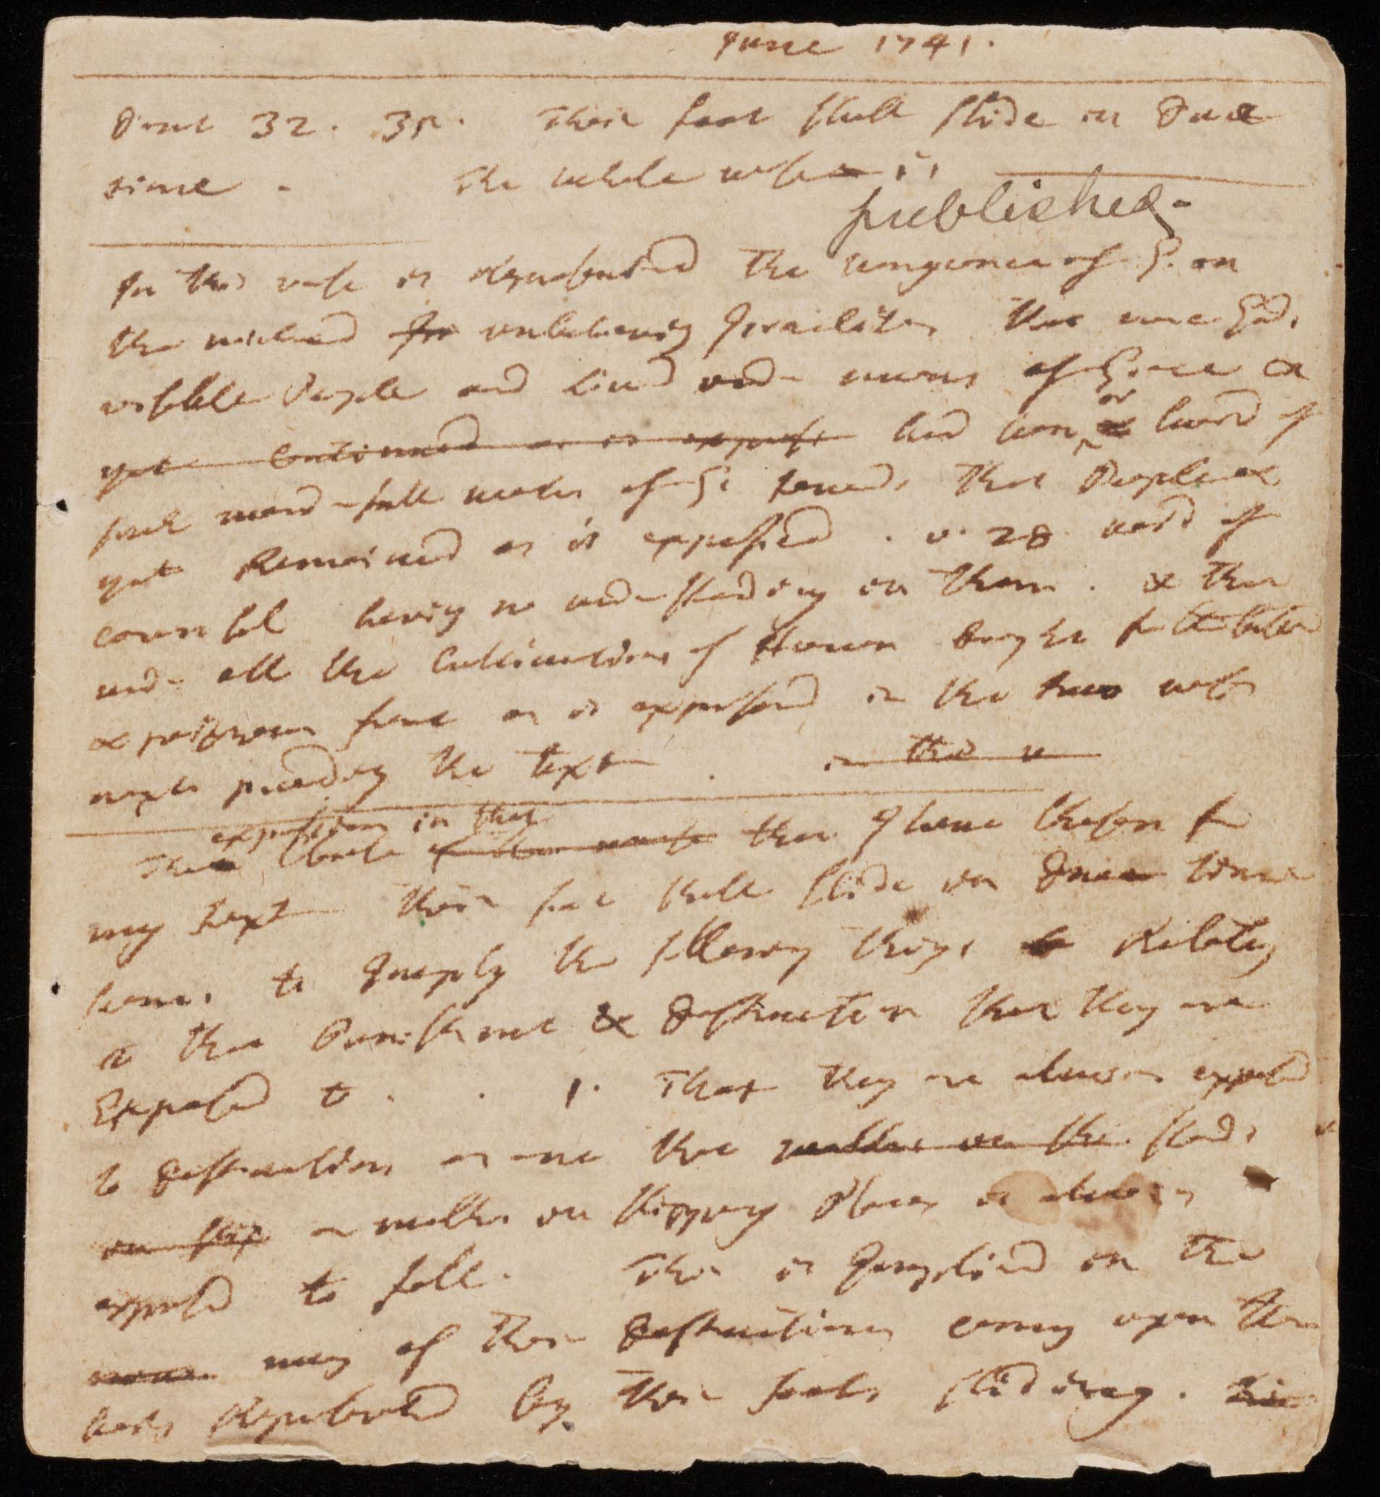 June 1741.
Deut 32. 35. Their foot shall slide in due
time - The whole verse is
published-
In this verse is Represented the vengeance of G. on
the wicked unbelieving Israelites that were Gods
visible People and lived under means of Grace &
yet continued as is express had been or lived of
such wonderfull works of G. towards that People &
yet Remained as is expressed . v. 28 void of
counsel having no understanding in them . & that
under all the Cultivations of Heaven brought forth bitter
& poisonous fruit as is expressed in the two verses
next preceding the text . in the v
expression in that
The that I have chosen for
my text their foot shall slide in due time
seems to Imply the following things Relating
to that Punishment & destruction that they are
Exposed to . . 1. That they are always exposed
to destruction as one that walks on the stands
on slip or walks on slippery Places is always
exposed to fall. This is Implied in the
manner way of their destructions coming upon them
being Represented by their foots slideing .